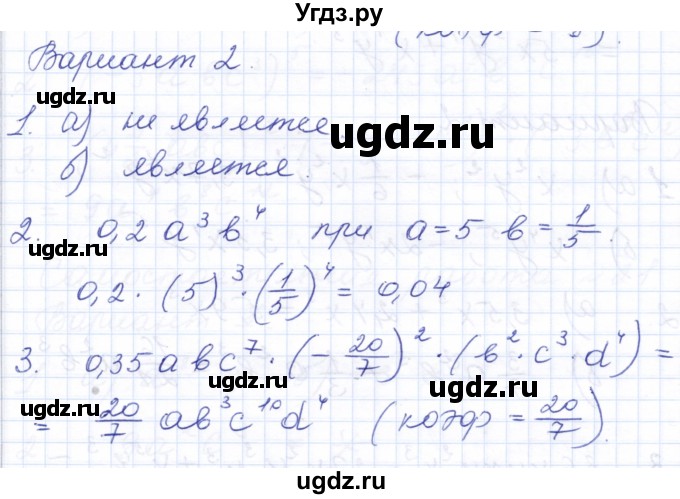 Угдз.ру
Вариант 2.
ugdz.ru
1. а) не является.
ugdz.ru
б) является.
2. 0,2 a³ b⁴ при a = 5 b = 1/5.
ugdz.ru
0,2 · (5)³ · (1/5)⁴ = 0,04
3. 0,35 a b c⁷ · (− 20/7)² · (b² · c³ · d⁴) =
ugdz.ru ugdz.ru
= 20/7 ab³c¹⁰d⁴ (коэф = 20/7).
ugdz.ru
Угдз.ру